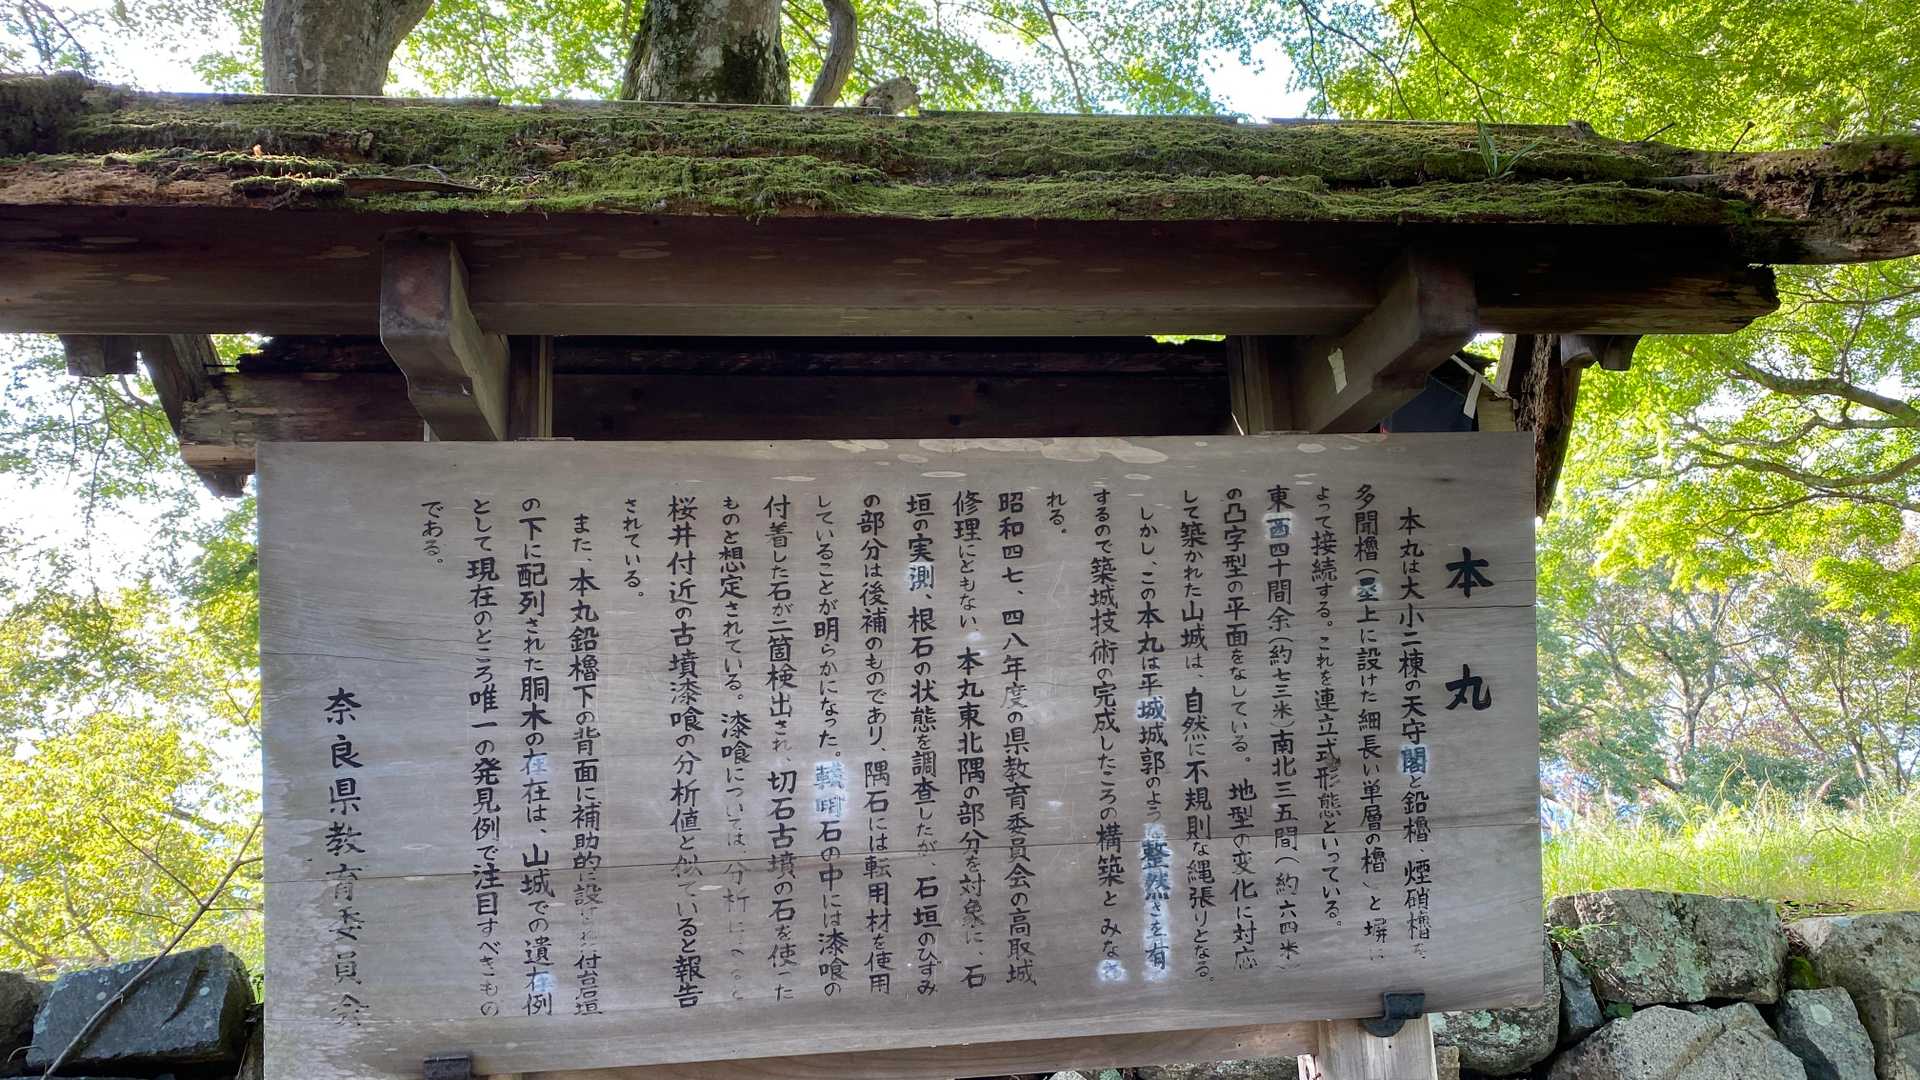 本丸
本丸は大小二棟の天守閣と鉛櫓、煙硝櫓を
多聞櫓(塁上に設けた細長い単層の櫓)と塀に
よって接続する。これを連立式形態といっている。
東西四十間余(約七三米)南北三五間(約六四米)
の凸字型の平面をなしている。地型の変化に対応
して築かれた山城は、自然に不規則な縄張りとなる。
しかし、この本丸は平城城郭のような整然さを有
するので築城技術の完成したころの構築とみなさ
れる。
昭和四七、四八年度の県教育委員会の高取城
修理にともない、本丸東北隅の部分を対象に、石
垣の実測、根石の状態を調査したが、石垣のひずみ
の部分は後補のものであり、隅石には転用材を使用
していることが明らかになった。転用石の中には漆喰の
付着した石が二箇検出され、切石古墳の石を使った
ものと想定されている。漆喰については、分析によると
桜井付近の古墳漆喰の分析値と似ていると報告
されている。
また、本丸鉛櫓下の背面に補助的に設けた付台石垣
の下に配列された胴木の在在は、山城での遺在例
として現在のところ唯一の発見例で注目すべきもの
である。
奈良県教育委員会